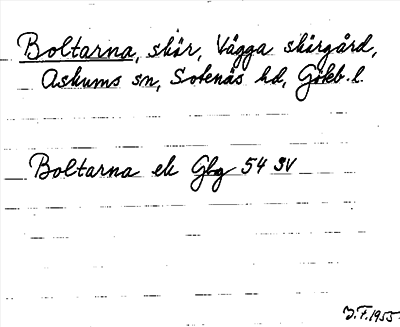 Boltarna, skär, Vägga skärgård,
Askums sn, Sotenäs hd, Göteb. l.
Boltarna ek Gbg 54 SV
J.F. 1955